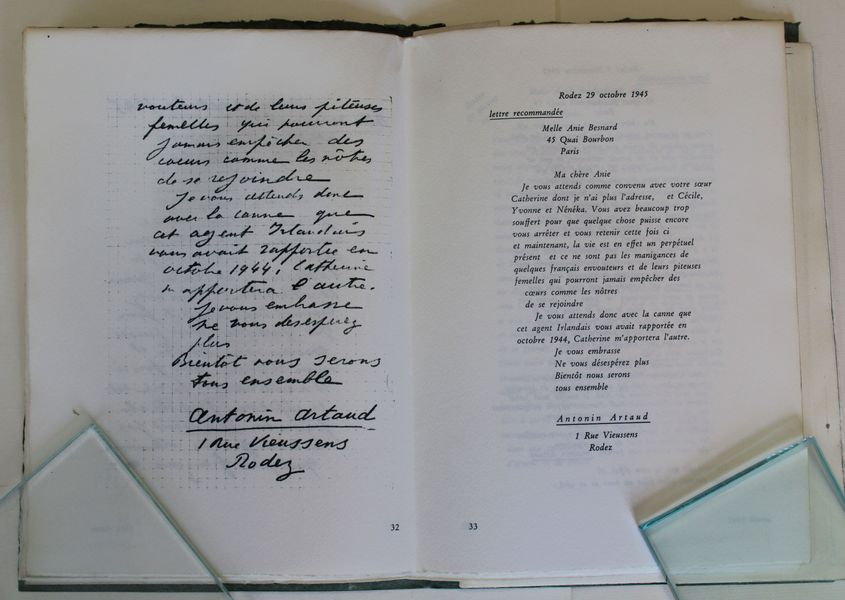 vouteurs et de leurs piteuses
femelles qui pourront
jamais empêcher des
cœurs comme les nôtres
de se rejoindre
Je vous attends donc
avec la canne que
cet agent Irlandais
vous avait rapportée en
octobre 1944, Catherine
m'apportera l'autre.
Je vous embrasse
ne vous désespérez
plus
Bientôt nous serons
tous ensemble
Antonin Artaud
1 Rue Vieussens
Rodez
32
Rodez 29 octobre 1945
lettre recommandée
Melle Anie Besnard
45 Quai Bourbon
Paris
Ma chère Anie
Je vous attends comme convenu avec votre sœur
Catherine dont je n'ai plus l'adresse, et Cécile,
Yvonne et Nénéka. Vous avez beaucoup trop
souffert pour que quelque chose puisse encore
vous arrêter et vous retenir cette fois ci
et maintenant, la vie est en effet un perpétuel
présent et ce ne sont pas les manigances de
quelques français envouteurs et de leurs piteuses
femelles qui pourront jamais empêcher des
cœurs comme les nôtres
de se rejoindre
Je vous attends donc avec la canne que
cet agent Irlandais vous avait rapportée en
octobre 1944, Catherine m'apportera l'autre.
Je vous embrasse
Ne vous désespérez plus
Bientôt nous serons
tous ensemble
Antonin Artaud
1 Rue Vieussens
Rodez
33